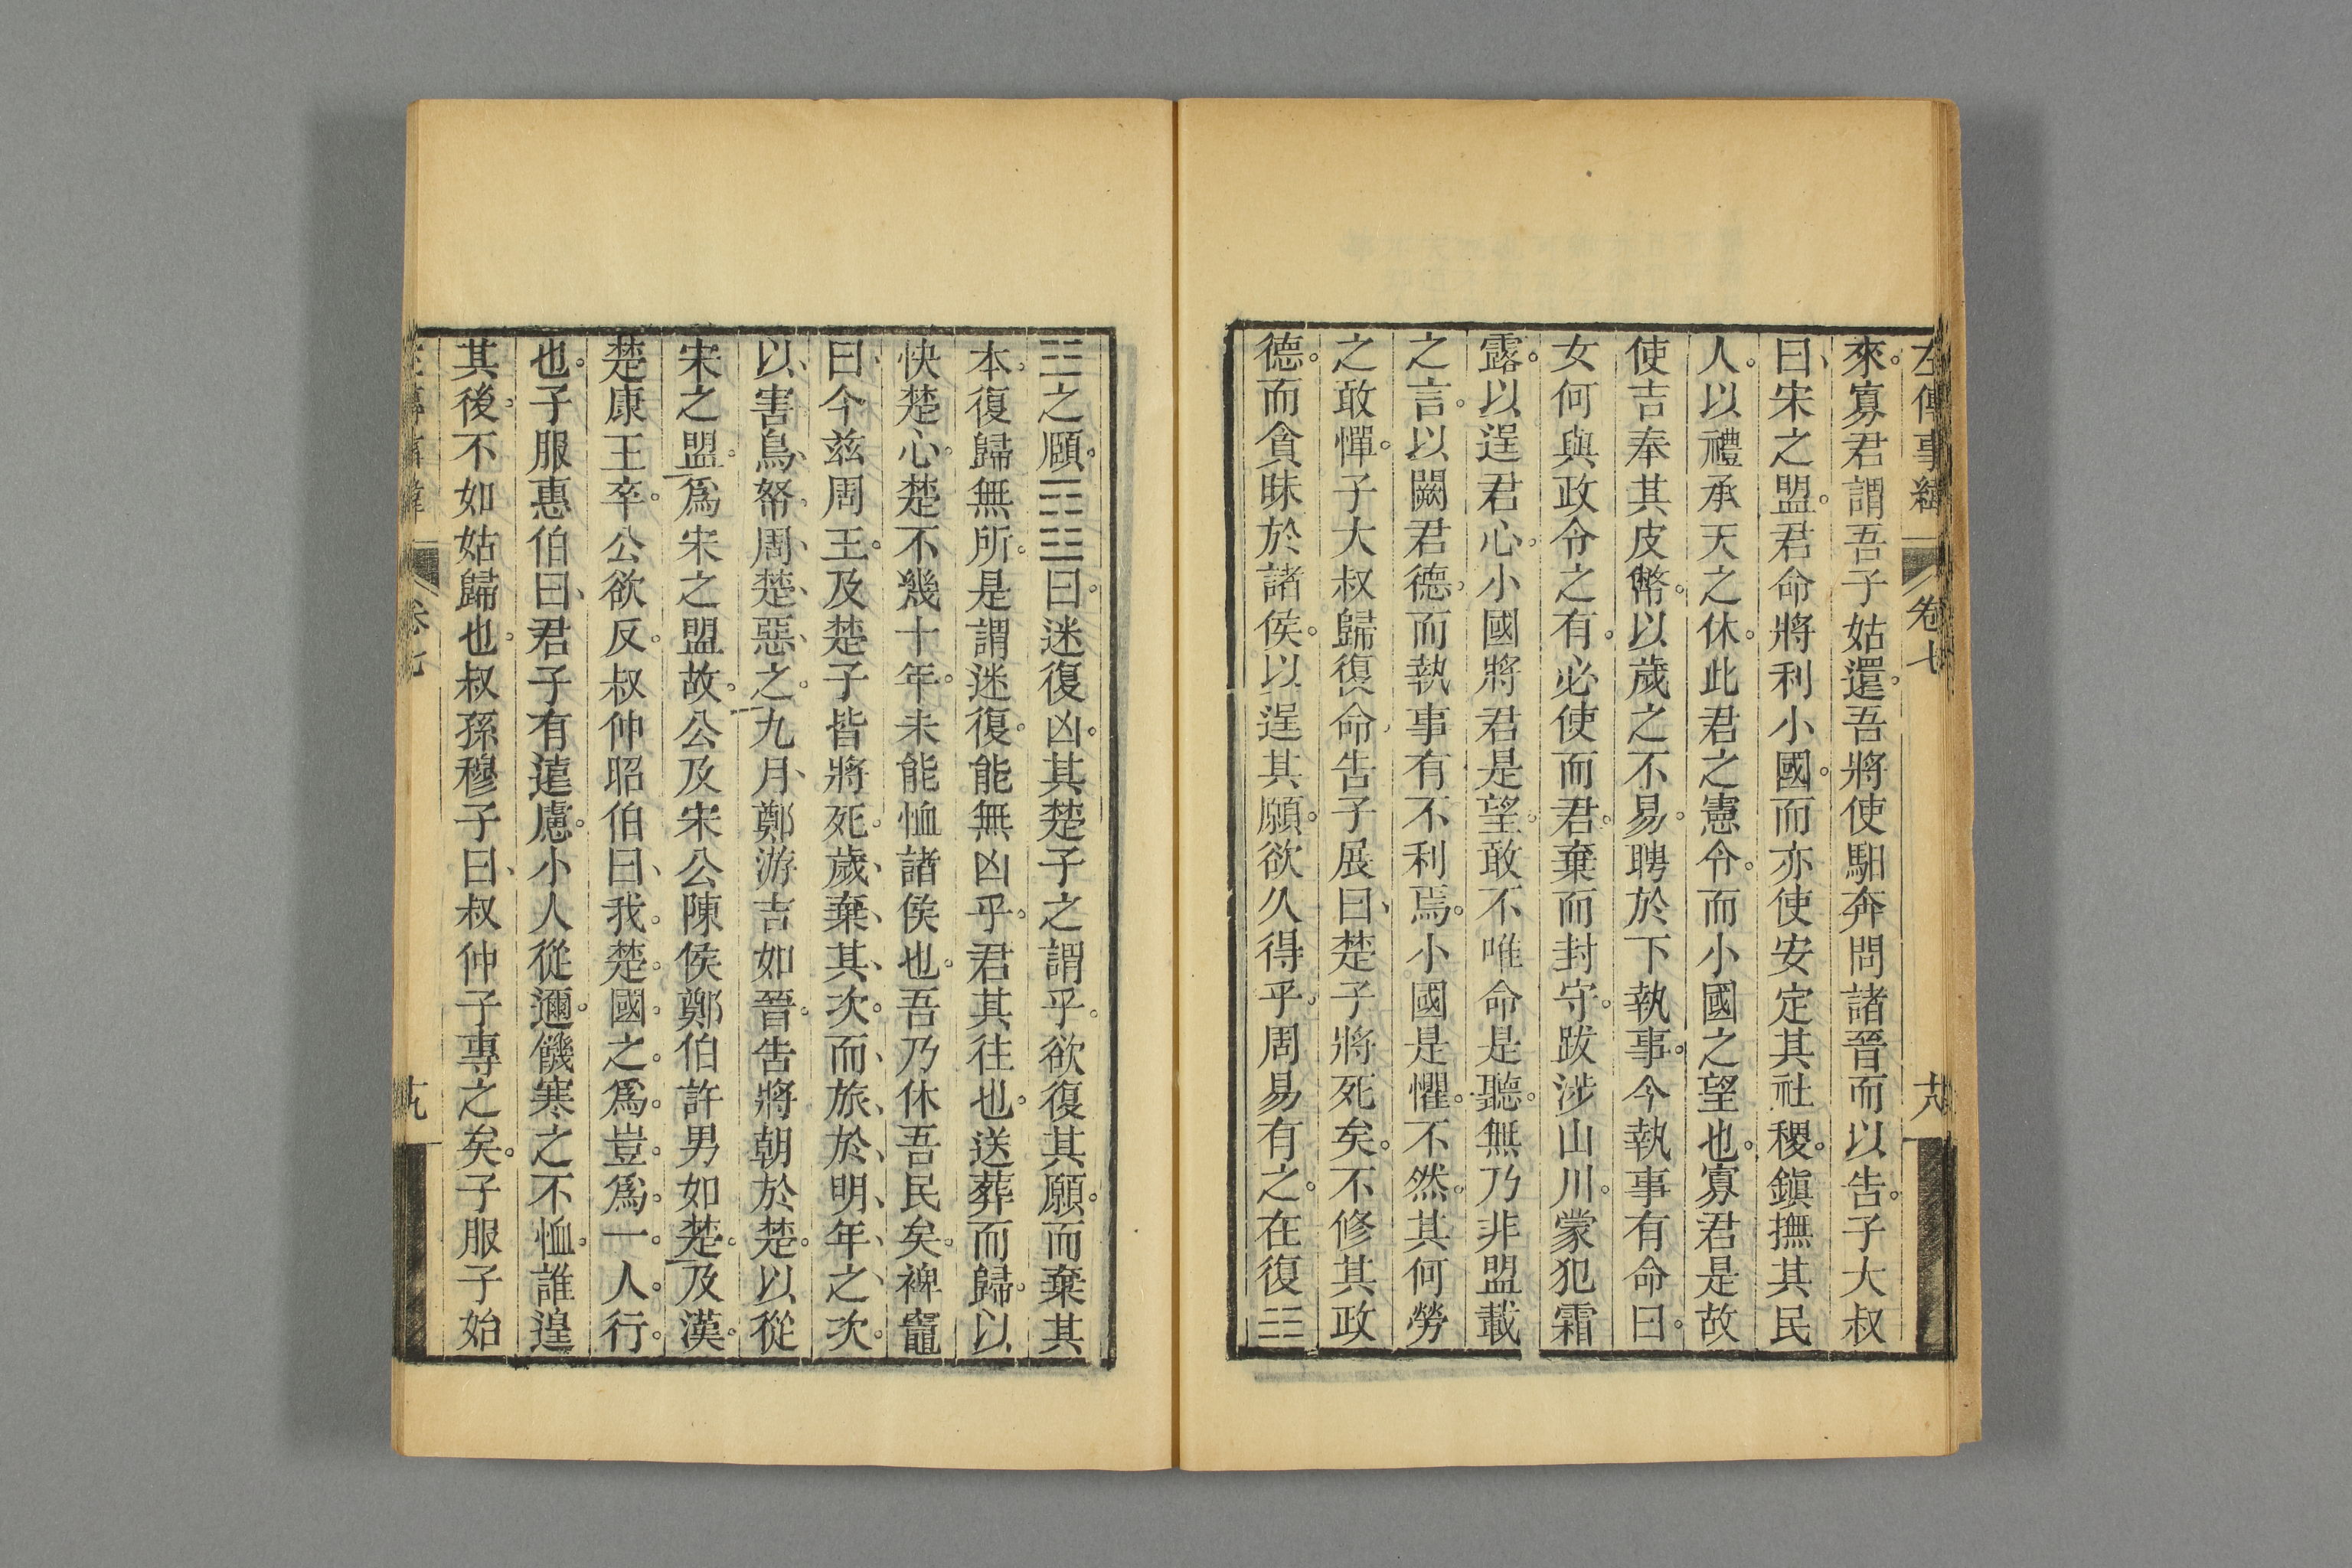 左傳事緯 卷七 十八
來。寡君謂吾子姑還。吾將使馹奔問諸晉而以告。子大叔
曰、宋之盟。君命將利小國。而亦使安定其社稷。鎭撫其民
人。以禮承天之休。此君之憲令。而小國之望也。寡君是故
使吉奉其皮幣。以歲之不易。聘於下執事。今執事有命曰。
女何與政令之有。必使而君。棄而封守。跋涉山川。蒙犯霜
露。以逞君心。小國將君是望。敢不唯命是聽。無乃非盟載
之言。以闕君德。而執事有不利焉。小國是懼。不然。其何勞
之敢憚。子大叔歸復命。告子展曰、楚子將死矣。不修其政
德。而貪昧於諸侯。以逞其願。欲久得乎。周易有之。在復☷
☳之頤。☶☳曰。迷復凶。其楚子之謂乎。欲復其願。而棄其
本。復歸無所。是謂迷復。能無凶乎。君其往也。送葬而歸。以
快楚心。楚不幾十年。未能恤諸侯也。吾乃休吾民矣。裨竈
曰、今茲周王。及楚子皆將死。歲、棄、其、次。而、旅、於、明、年、之、次。
以、害、鳥、帑、周、楚、惡、之。九月、鄭游吉如晉。告將朝於楚。以從
宋之盟。爲宋之盟故。公及宋公陳侯鄭伯許男如楚。及漢。
楚康王卒。公欲反。叔仲昭伯曰、我。楚。國。之。爲。豈。爲。一。人。行。
也。子服惠伯曰、君子有遠慮。小人從邇。饑寒之不恤。誰遑
其後。不如姑歸也。叔孫穆子曰、叔仲子專之矣。子服子始
卷七 十九